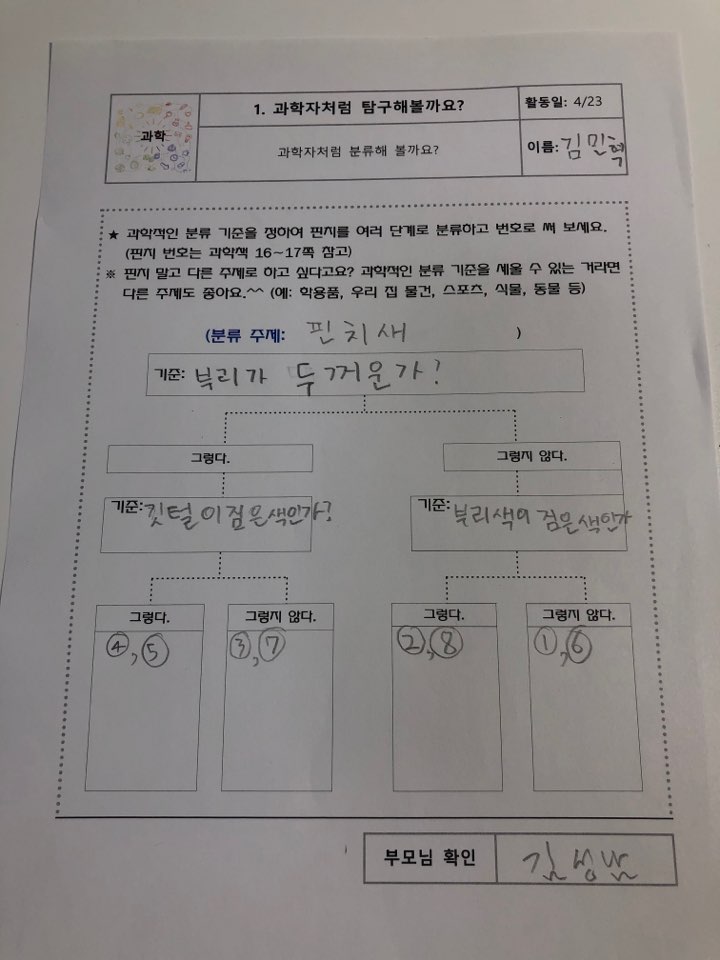 과학
1. 과학자처럼 탐구해볼까요?
활동일: 4/23
과학자처럼 분류해 볼까요?
이름: 김민혁
★ 과학적인 분류 기준을 정하여 핀치를 여러 단계로 분류하고 번호로 써 보세요.
(핀치 번호는 과학책 16~17쪽 참고)
※ 핀치 말고 다른 주제로 하고 싶다고요? 과학적인 분류 기준을 세울 수 있는 거라면
다른 주제도 좋아요.^^ (예: 학용품, 우리 집 물건, 스포츠, 식물, 동물 등)
(분류 주제: 핀치새 )
기준: 부리가 두꺼운가?
그렇다.
그렇지 않다.
기준: 깃털이 검은색인가?
기준: 부리색이 검은색인가
그렇다.
그렇지 않다.
그렇다.
그렇지 않다.
④, ⑤
③, ⑦
②, ⑧
①, ⑥
부모님 확인